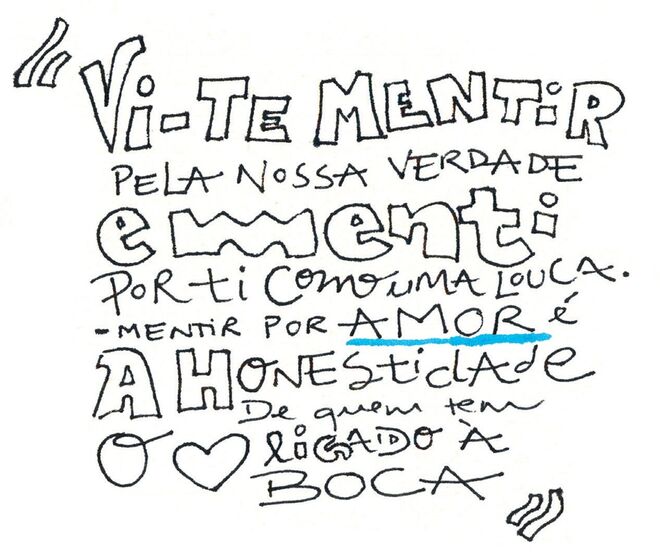 "Vi-TE MENTiR
PELA NOSSA VERDADE
e menti
PORti Como UMA LOUCA.
-MENTIR POR AMOR é
A HONEStidAde
De quem tem
O ♥ liGAdO À
BOCA"